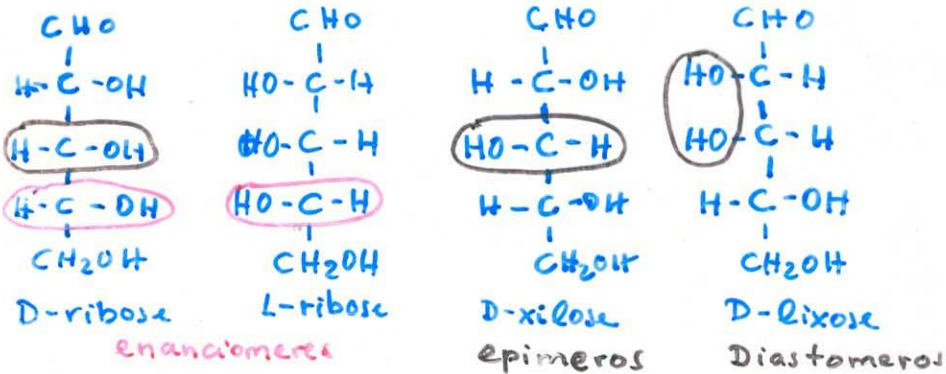 CHO
H-C-OH
H-C-OH
H-C-OH
CH₂OH
D-ribose
CHO
HO-C-H
HO-C-H
HO-C-H
CH₂OH
L-ribose
enanciomeres
CHO
H-C-OH
HO-C-H
H-C-OH
CH₂OH
D-xilose
epimeros
CHO
HO-C-H
HO-C-H
H-C-OH
CH₂OH
D-lixose
Diastomeros